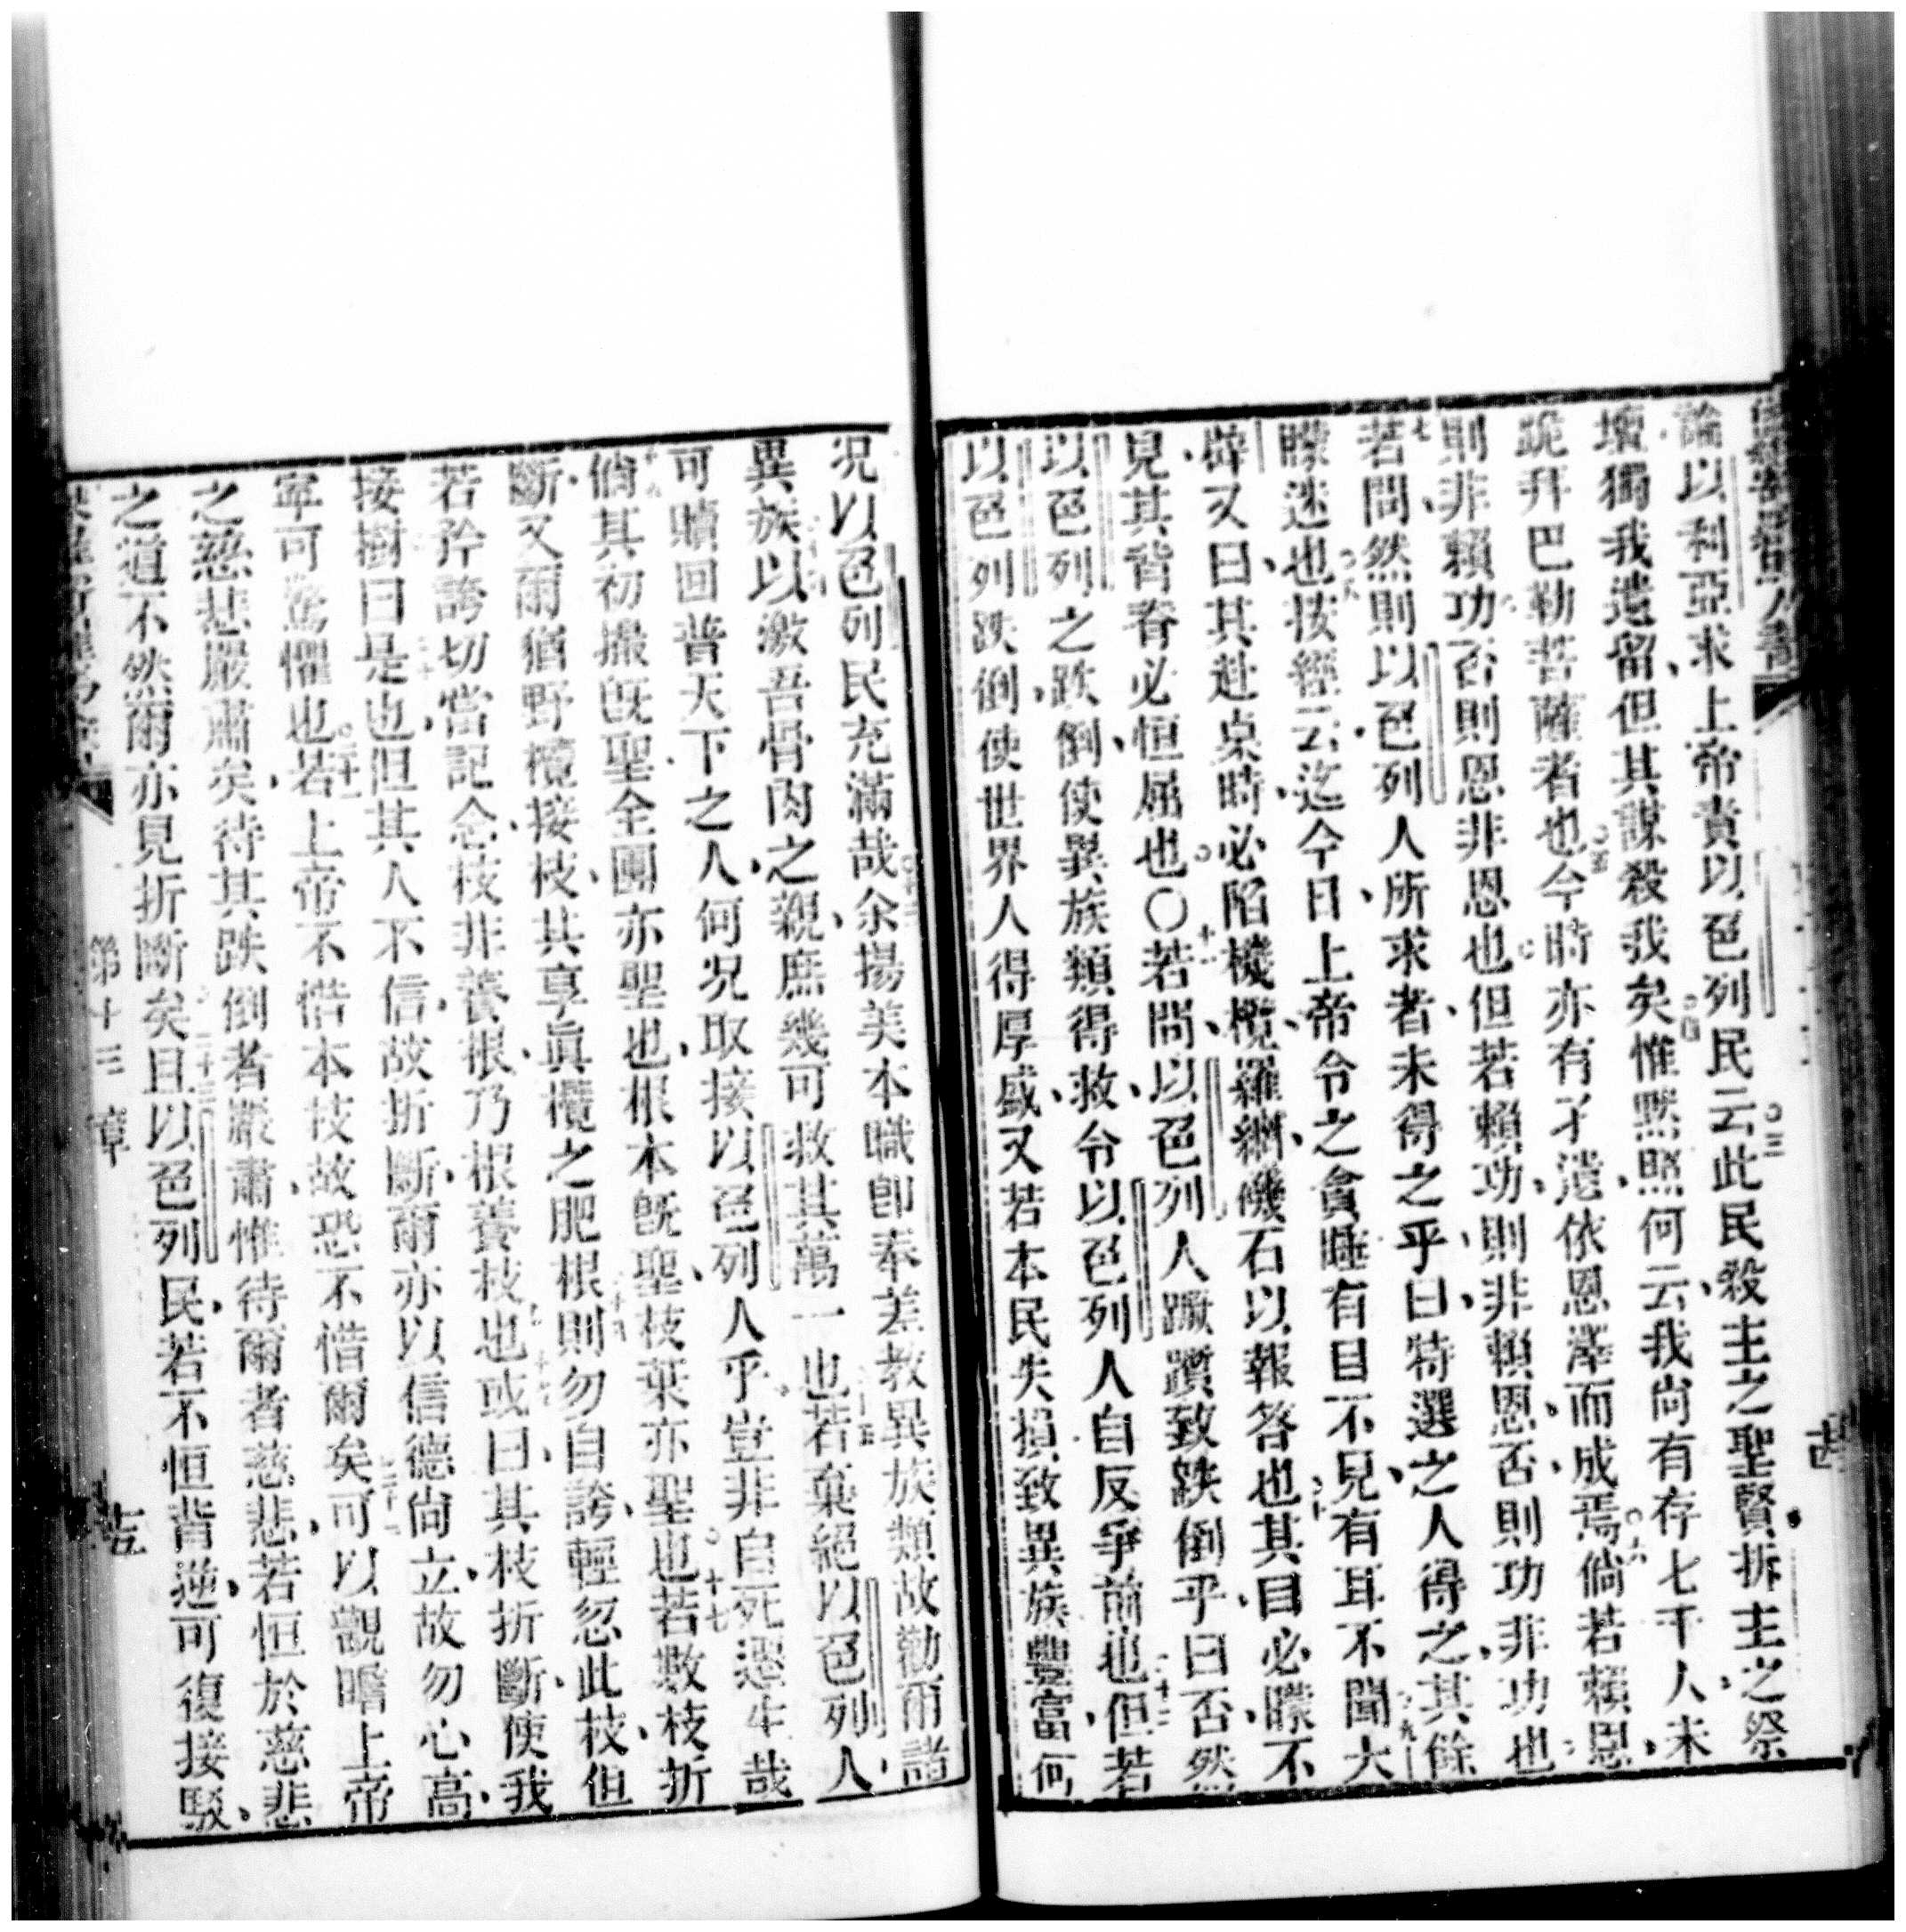 論以利亞求上帝責以色列民云此民殺主之聖賢拆主之祭
壇獨我遺留但其謀殺我矣惟默照何云我尚有存七千人未
跪拜巴勒菩薩者也今時亦有孑遺依恩澤而成焉倘若賴恩
則非賴功否則恩非恩也但若賴功則非賴恩否則功非功也
若問然則以色列人所求者未得之乎曰特選之人得之其餘
矇迷也按經云迄今日上帝令之貪睡有目不見有耳不聞大
辟又曰其赴桌時必陷機檻羅網磯石以報答也其目必矇不
見其背脊必恒屈也〇若問以色列人蹶躓致跌倒乎曰否然
以色列之跌倒使異族類得救令以色列人自反爭前也但若
以色列跌倒使世界人得厚盛又若本民失損致異族豐富何
况以色列民充滿哉余揚美本職卽奉差教異族類故勸爾諸
異族以激吾骨肉之親庶幾可救其萬一也若棄絕以色列人
可贖回普天下之人何况取接以色列人乎豈非自死還生哉
倘其初撮既聖全團亦聖也根本既聖枝葉亦聖也若數枝折
斷又爾猶野欖接枝其享眞欖之肥根則勿自誇輕忽此枝但
若矜誇切當記念枝非養根乃根養枝也或曰其枝折斷使我
接樹曰是也但其人不信故折斷爾亦以信德尚立故勿心高
寜可驚懼也若上帝不惜本枝故恐不惜爾矣可以觀瞻上帝
之慈悲嚴肅矣待其跌倒者嚴肅惟待爾者慈悲若恒於慈悲
之道不然爾亦見折斷矣且以色列民若不恒背逆可復接駁
第十三章